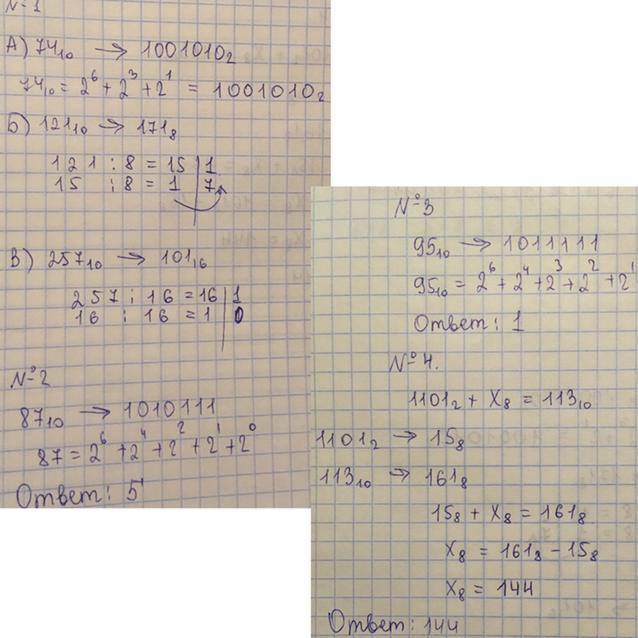 №1
А) 74₁₀ → 1001010₂
74₁₀ = 2⁶ + 2³ + 2¹ = 1001010₂
Б) 121₁₀ → 171₈
121 : 8 = 15 | 1
15 : 8 = 1 | 7
В) 257₁₀ → 101₁₆
257 : 16 = 16 | 1
16 : 16 = 1 | 0
№2
87₁₀ → 1010111
87 = 2⁶ + 2⁴ + 2² + 2¹ + 2⁰
Ответ: 5
№3
95₁₀ → 1011111
95₁₀ = 2⁶ + 2⁴ + 2³ + 2² + 2¹
Ответ: 1
№4.
1101₂ + X₈ = 113₁₀
1101₂ → 15₈
113₁₀ → 161₈
15₈ + X₈ = 161₈
X₈ = 161₈ - 15₈
X₈ = 144
Ответ: 144